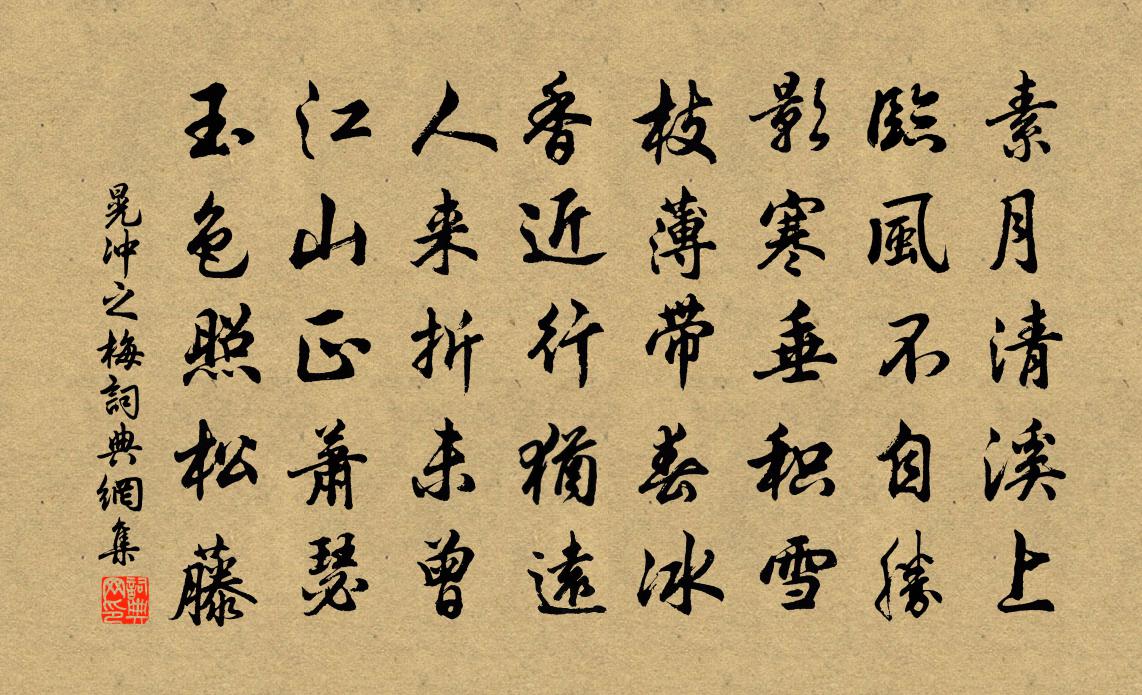 素月清溪上
臨風不自勝
影寒垂积雪
枝薄带春冰
香近行猶遠
人来折未曾
江山正蕭瑟
玉色照松藤
晃沖之梅詞典網集
詞典網印